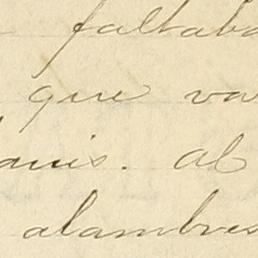 faltaba
que va
Al
alambres